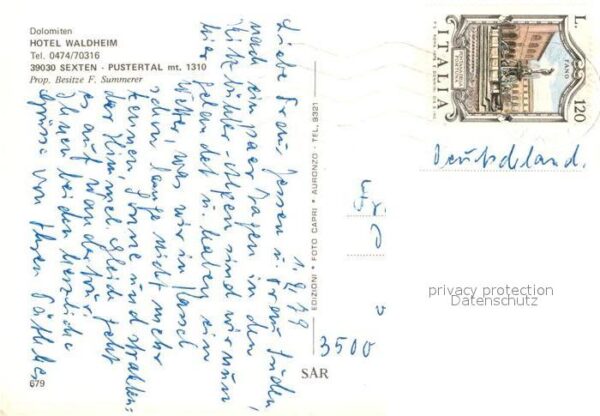 Dolomiten
HOTEL WALDHEIM
Tel. 0474/70316
39030 SEXTEN - PUSTERTAL mt. 1310
Prop. Besitze F. Summerer
1.9.79
Liebe Frau Jessen u. Frau
nach ein paar Tagen in den
Alpen sind wir nun
hier gelandet u. haben ein
Wetter, was wir in Kassel
schon lange nicht mehr
kennen, Sonne und strahlen-
der Himmel. Gleich geht
es auf Wandertour.
Ihnen beiden herzliche
Grüsse von Ihren
EDIZIONI * FOTO CAPRI * AURONZO - TEL. 9321
SAR
679
L. 120
ITALIA
FANO
Deutschland.
Fr.
J
3500
privacy protection
Datenschutz